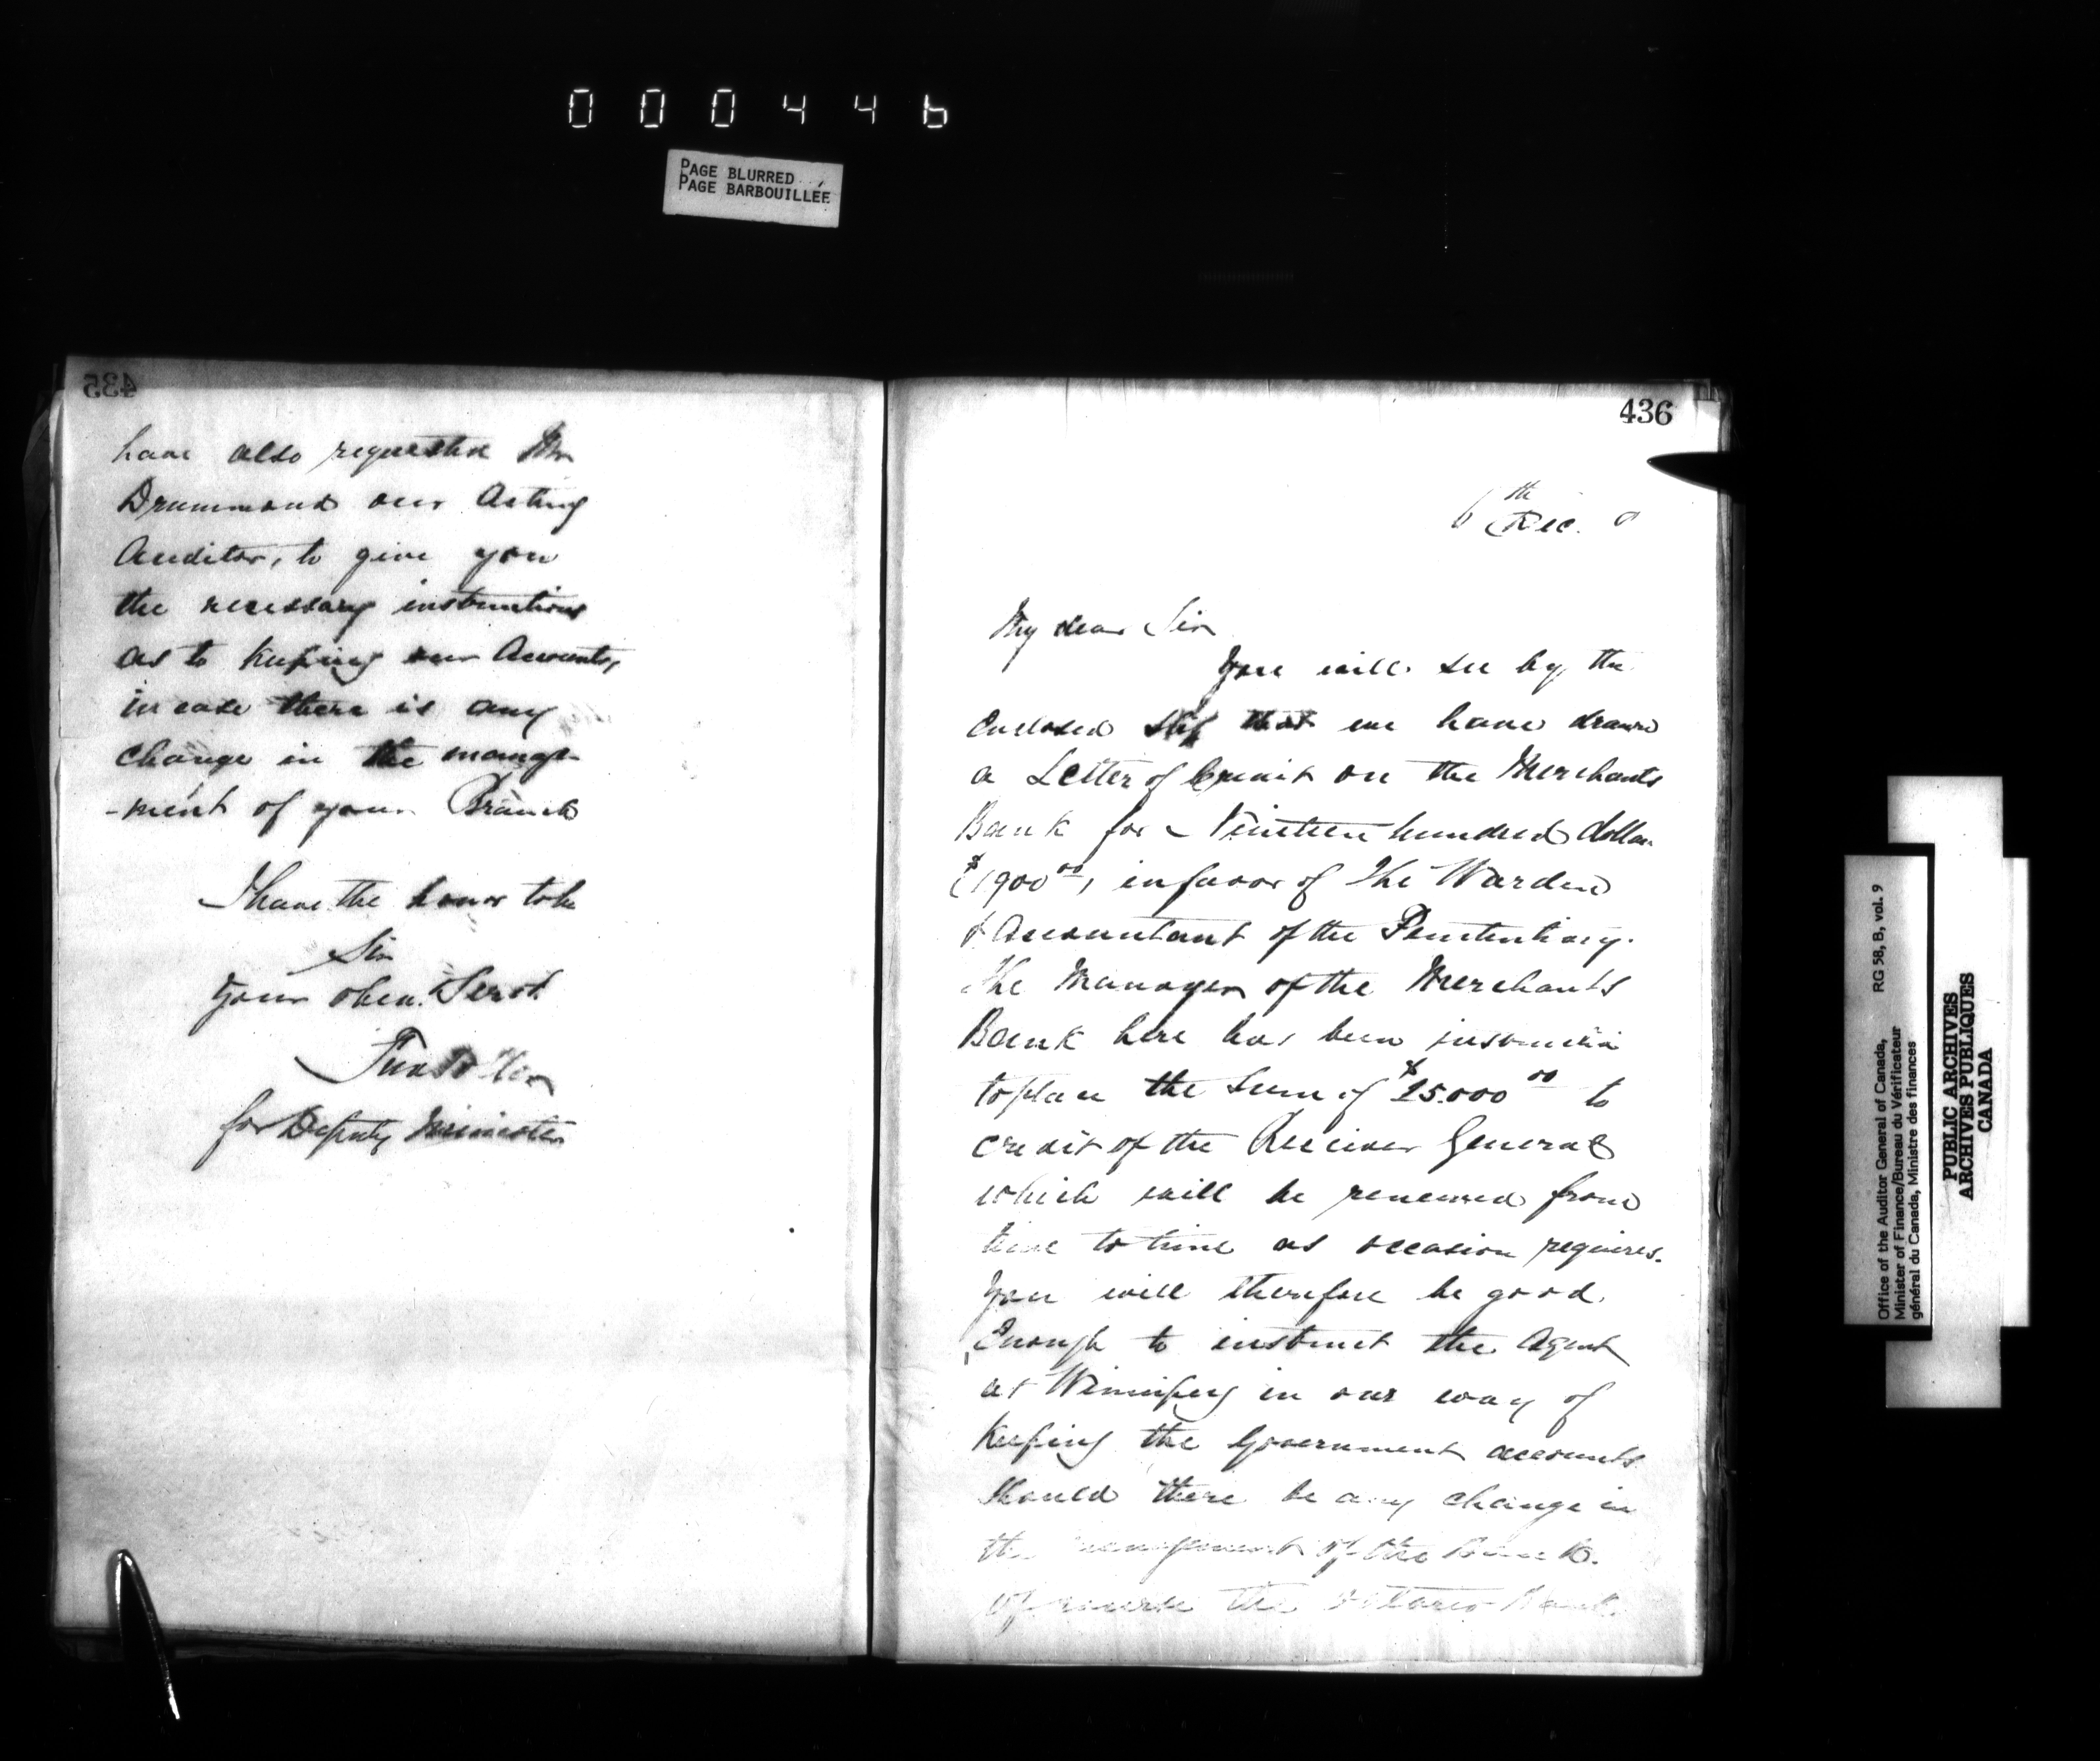 000446
PAGE BLURRED
PAGE BARBOUILLÉE
435
have also requested Mr
Drummond our Acting
Auditor, to give you
the necessary instructions
as to keeping our Accounts,
in case there is any
change in the manage-
-ment of your Branch
I have the honor to be
Sir
Your obed. Servt
for Deputy Minister
436
6th Dec.
My dear Sir
You will see by the
enclosed slip that we have drawn
a Letter of Credit on the Merchants
Bank for Nineteen hundred dollars
($1900 00, in favor of The Warden
& Accountant of the Penitentiary.
The Manager of the Merchants
Bank here has been
to place the Sum of $25.000 00 to
credit of the Receiver General
which will be renewed from
time to time as occasion requires.
You will therefore be good
Enough to instruct the Agent
at Winnipeg in our way of
Keeping the Government accounts
Should there be any change in
the management of the Bank.
Of course the Ontario Bank
Office of the Auditor General of Canada, RG 58, B, vol. 9
Minister of Finance/Bureau du Vérificateur
général du Canada, Ministre des finances
PUBLIC ARCHIVES
ARCHIVES PUBLIQUES
CANADA